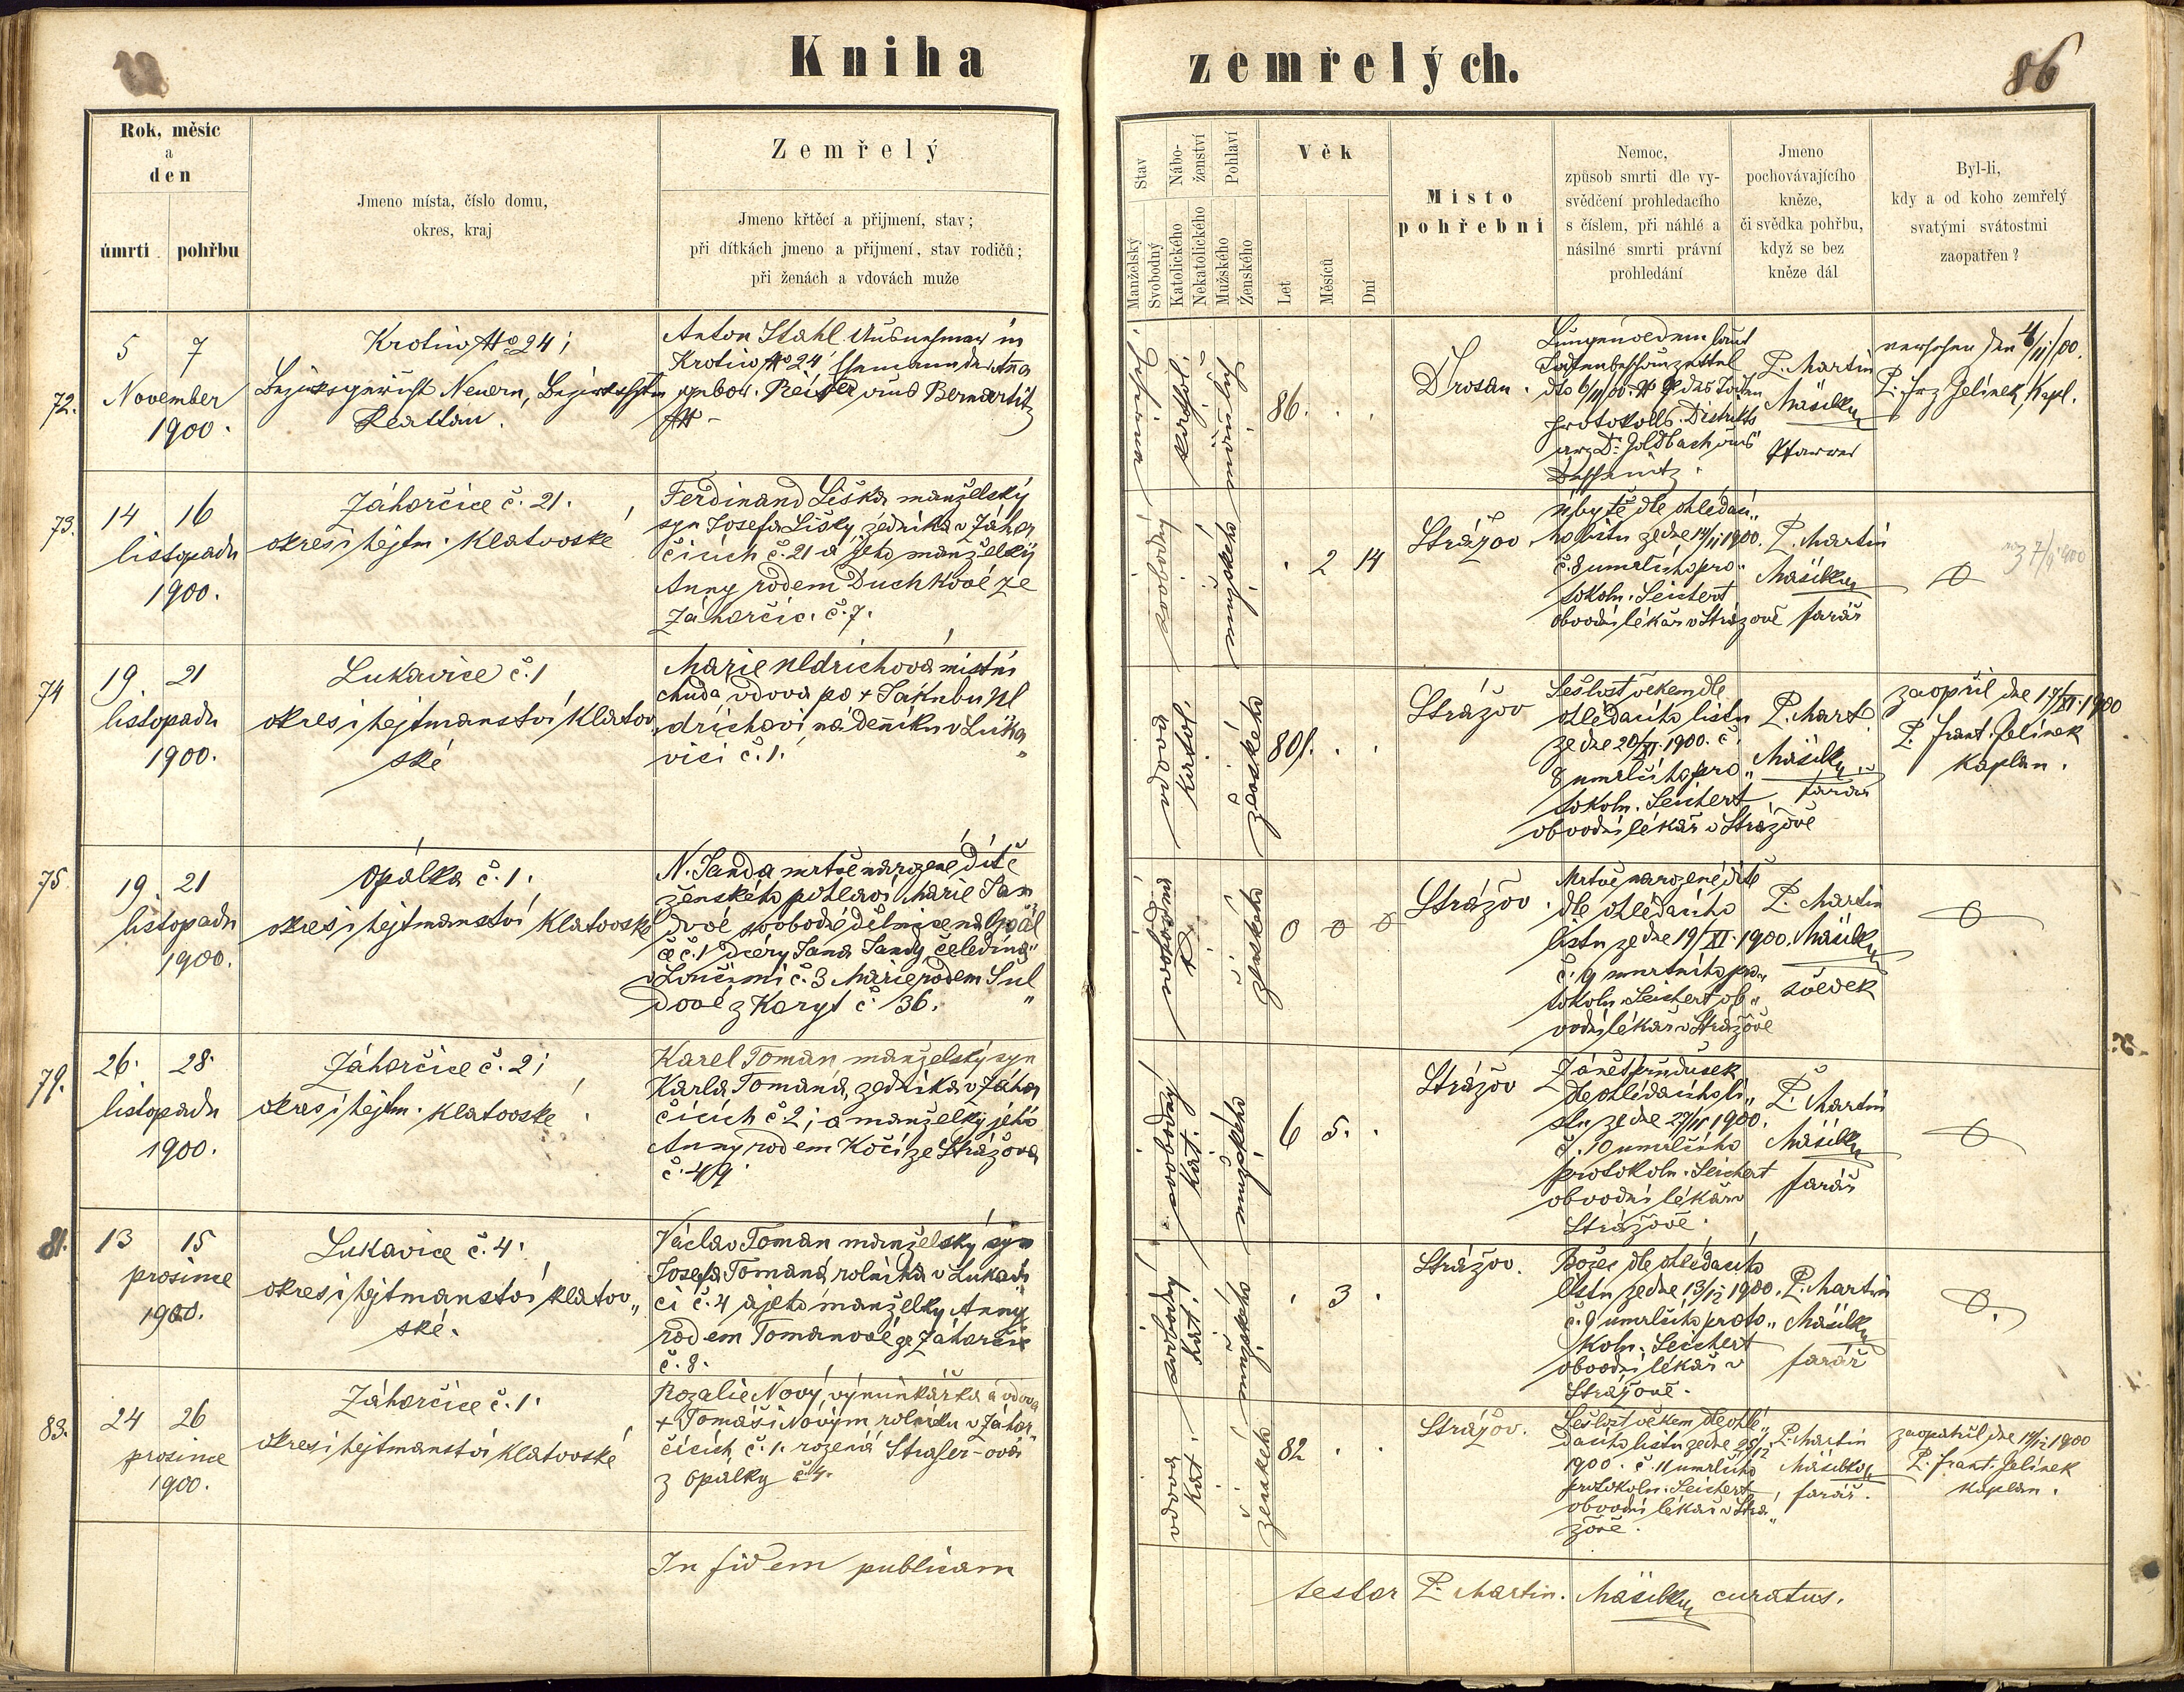 Kniha
zemřelých.
86
Rok, měsíc
a
den
úmrtí
pohřbu
Jmeno místa, číslo domu,
okres, kraj
Zemřelý
Jmeno křtěcí a přijmení, stav;
při dítkách jmeno a přijmení, stav rodičů;
při ženách a vdovách muže
Stav
Manželský
Svobodný
Nábo-
ženství
Katolického
Nekatolického
Pohlaví
Mužského
Ženského
Věk
Let
Měsíců
Dní
Místo
pohřební
Nemoc,
způsob smrti dle vy-
svědčení prohledacího
s číslem, při náhlé a
násilné smrti právní
prohledání
Jmeno
pochovávajícího
kněze,
či svědka pohřbu,
když se bez
kněze dál
Byl-li,
kdy a od koho zemřelý
svatými svátostmi
zaopatřen?
72.
5 7
November
1900.
Krotiw No 24;
Bezirksgericht Neuern,
Klattau.
Anton Stahl in
Krotiw No 24, Ehemann der Anna
gebor. aus Bernartitz
No -
kathol.
männlich
86. . .
Drosau.
Lungenoedem laut
Todtenbeschauzettel
dto 6/11 00. No 9 des Todten
protokolls. Distrikts
arz Dr Goldbach aus
P. Martin
Mäsilko
Pfarrer
versehen den 4/11/00.
P. Frz Jelínek, Kapl.
73.
14 16
listopadu
1900.
Záhorčice č. 21.
okres i hejtm. Klatovské
Ferdinand Liška manželský
syn Josefa Lišky, zedníka v Záhor
čicích č. 21 a jeho manželky
Anny rodem Duchkové ze
Záhorčic č. 7.
svobodný
mužského
. 2 14
Strážov
úbytě dle ohledací„
ho listu ze dne 14/11 1900.
č. 8 umrlčího pro„
tokolu. Leichert
obvodní lékař v Strážově
P. Martin
Mäsilko
farář
74
19. 21
listopadu
1900.
Lukavice č. 1
okres i hejtmanství Klatov„
ské
Marie Uldrichová místní
chudá vdova po + Jakubu Ul
drichovi nádenníku v Luka„
vici č. 1.
vdova
katol.
ženského
80l. . .
Strážov
Sešlost věkem dle
ohledacího listu
ze dne 20/XI. 1900. č.
8 umrlčího pro„
tokolu. Leichert
obvodní lékař v Strážově
P. Mart.
Mäsilko
farář
zaopřil dne 17/XI. 1900
P. Frant. Jelínek
kaplan.
75.
19. 21
listopadu
1900.
Opálka č. 1.
okres i hejtmanství Klatovské
N. Janda mrtvě narozené dítě
ženského pohlaví Marie Jan
dové svobodné dělnice na Opál
ce č. 1 dcery Jana Jandy čeledína
v Loučimi č. 3 Marie rodem Sul„
dové z Koryt č. 36.
svobodná
ženského
0 0 0
Strážov.
Mrtvě narozené dítě
dle ohledacího
listu ze dne 19/XI. 1900.
č. 9 umrlčího pro„
tokolu. Leichert ob„
vodní lékař v Strážově
P. Martin
Mäsilko
svědek
79.
26. 28.
listopadu
1900.
Záhorčice č. 2;
okres i hejtm. Klatovské.
Karel Toman, manželský syn
Karla Tomana, zedníka v Záhor
čicích č. 2; a manželky jeho
Anny rodem Kočí ze Strážova
č. 49.
svobodný
kat.
mužského
6 5. .
Strážov
Zánět průdušek
dle ohledacího li„
stu ze dne 27/11 1900.
č. 10 umrlčího
protokolu. Leichert
obvodní lékař v
Strážově.
P. Martin
Mäsilko
farář
81.
13 15
prosince
1900.
Lukavice č. 4.
okres i hejtmanství Klatov„
ské.
Václav Toman manželský syn
Josefa Tomana, rolníka v Lukavi
ci č. 4 a jeho manželky Anny
rodem Tomanové ze Záhorčic
č. 8.
svobodný
kat.
mužského
. 3 .
Strážov.
Božec dle ohledacího
listu ze dne 13/12 1900.
č. 9 umrlčího proto„
kolu. Leichert
obvodní lékař v
Strážově.
P. Martin
Mäsilko
farář
83.
24 26
prosince
1900.
Záhorčice č. 1.
okres i hejtmanství Klatovské
Rozalie Nový, výminkářka a vdova
+ Tomáši Novým rolníku v Záhor„
čicích č. 1. rozená Straser-ová
z Opálky č. 4.
vdova
kat.
ženského
82 . .
Strážov.
Sešlost věkem dle ohle„
dacího listu ze dne 25/12
1900. č. 11 umrlčího
protokolu. Leichert
obvodní lékař v Strá„
žově.
P. Martin
Mäsilko
farář.
zaopatřil dne 19/12 1900
P. Frant. Jelínek
kaplan.
In fidem publicam
testor P. Martin. Mäsilko curatus.